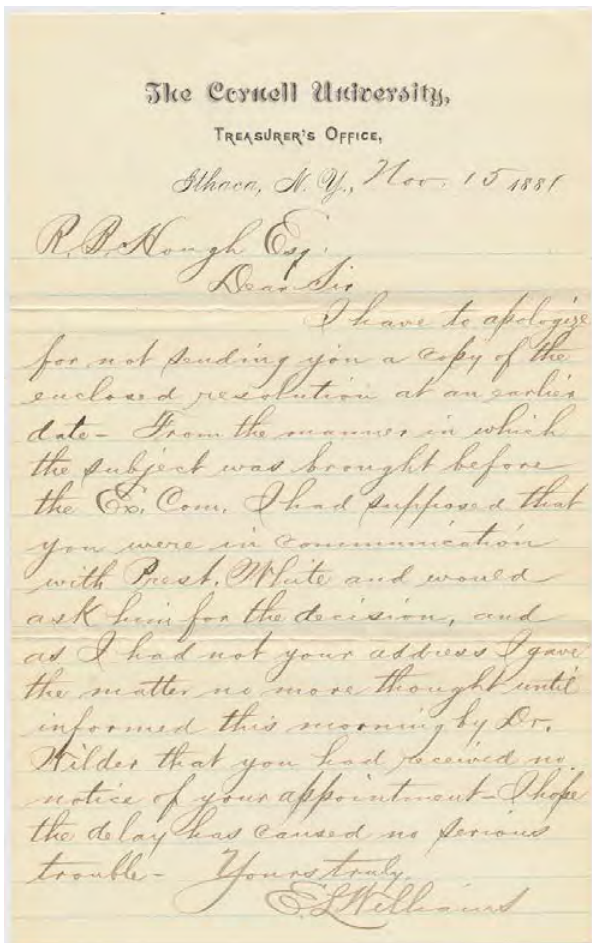 The Cornell University,
TREASURER'S OFFICE,
Ithaca, N. Y., Nov. 15 1881
R. B. Hough Esq.
Dear Sir
I have to apologize
for not sending you a copy of the
enclosed resolution at an earlier
date – From the manner in which
the subject was brought before
the Ex. Com. I had supposed that
you were in communication
with Prest. White and would
ask him for the decision, and
as I had not your address I gave
the matter no more thought until
informed this morning by Dr.
Wilder that you had received no
notice of your appointment – I hope
the delay has caused no serious
trouble – Yours truly,
E. L. Williams